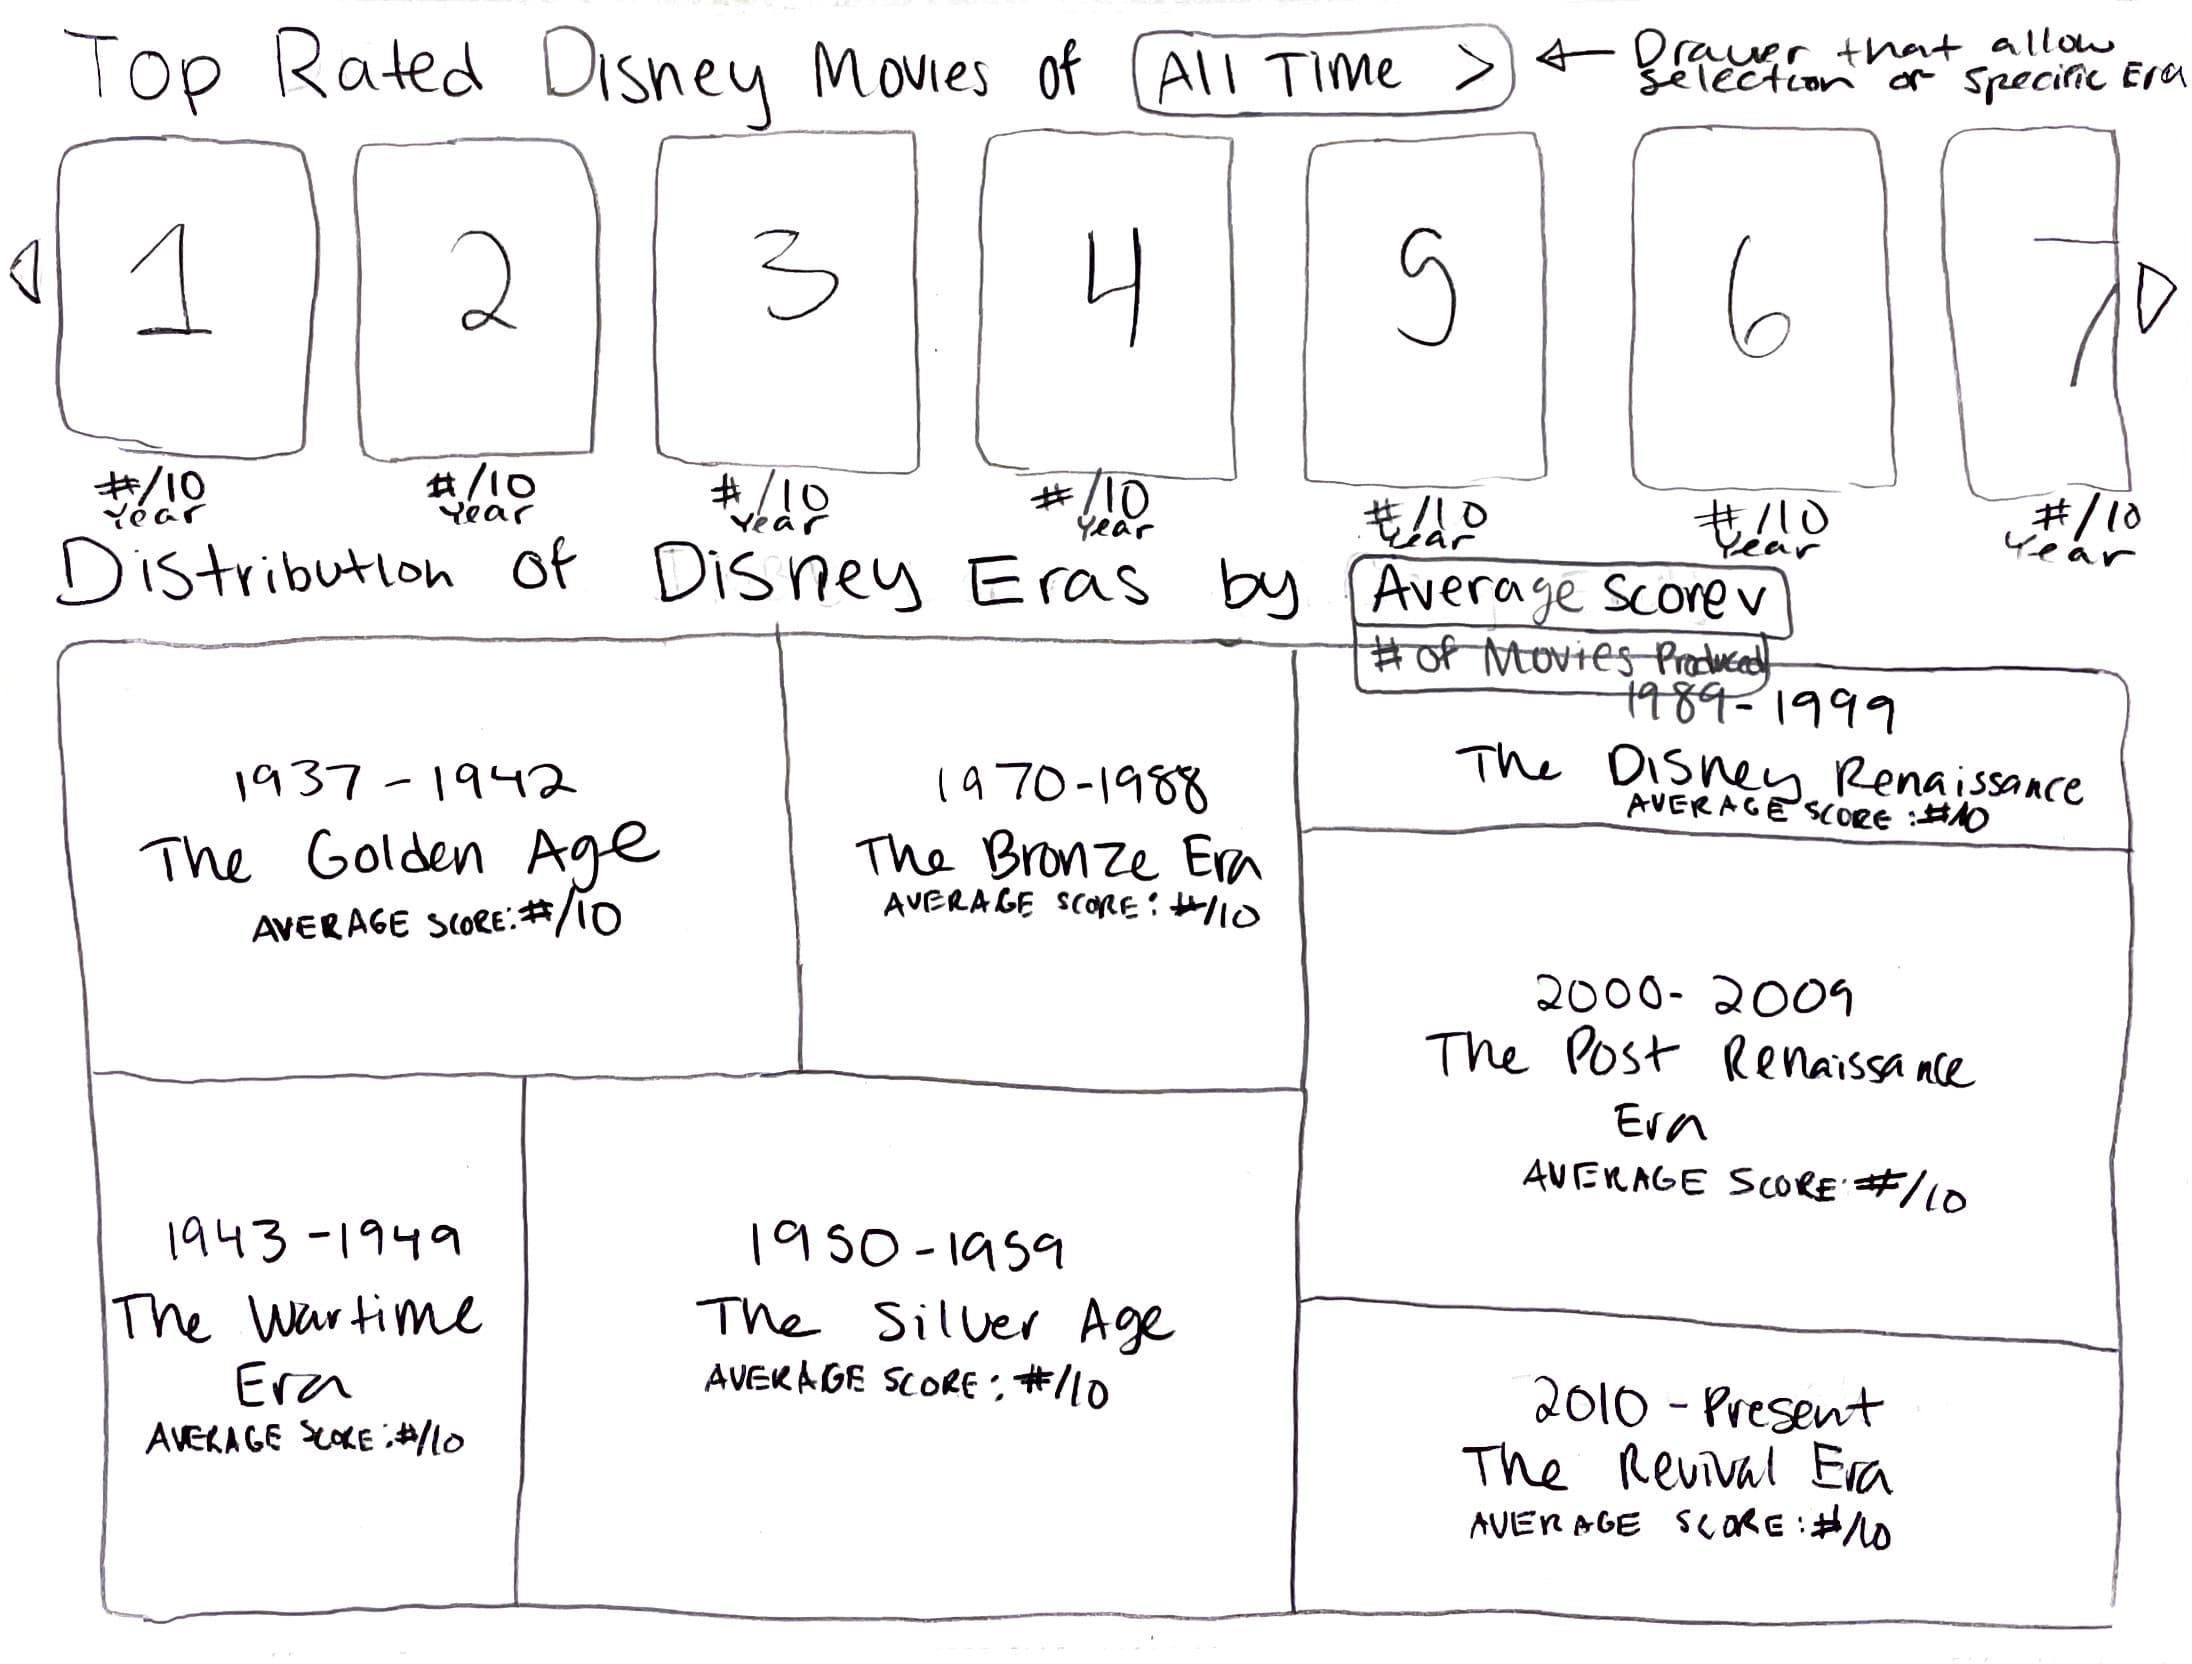 Top Rated Disney Movies of All Time >
← Drawer that allow
selection of specific Era
1
2
3
4
5
6
7
#/10
Year
#/10
Year
#/10
Year
#/10
Year
#/10
Year
#/10
Year
#/10
Year
Distribution of Disney Eras by Average Score v
# of Movies Produced
1937 - 1942
The Golden Age
AVERAGE SCORE: #/10
1970-1988
The Bronze Era
AVERAGE SCORE: #/10
1989-1999
The Disney Renaissance
AVERAGE SCORE: #/10
2000-2009
The Post Renaissance
Era
AVERAGE SCORE: #/10
1943-1949
The Wartime
Era
AVERAGE SCORE: #/10
1950-1959
The Silver Age
AVERAGE SCORE: #/10
2010 - Present
The Revival Era
AVERAGE SCORE: #/10